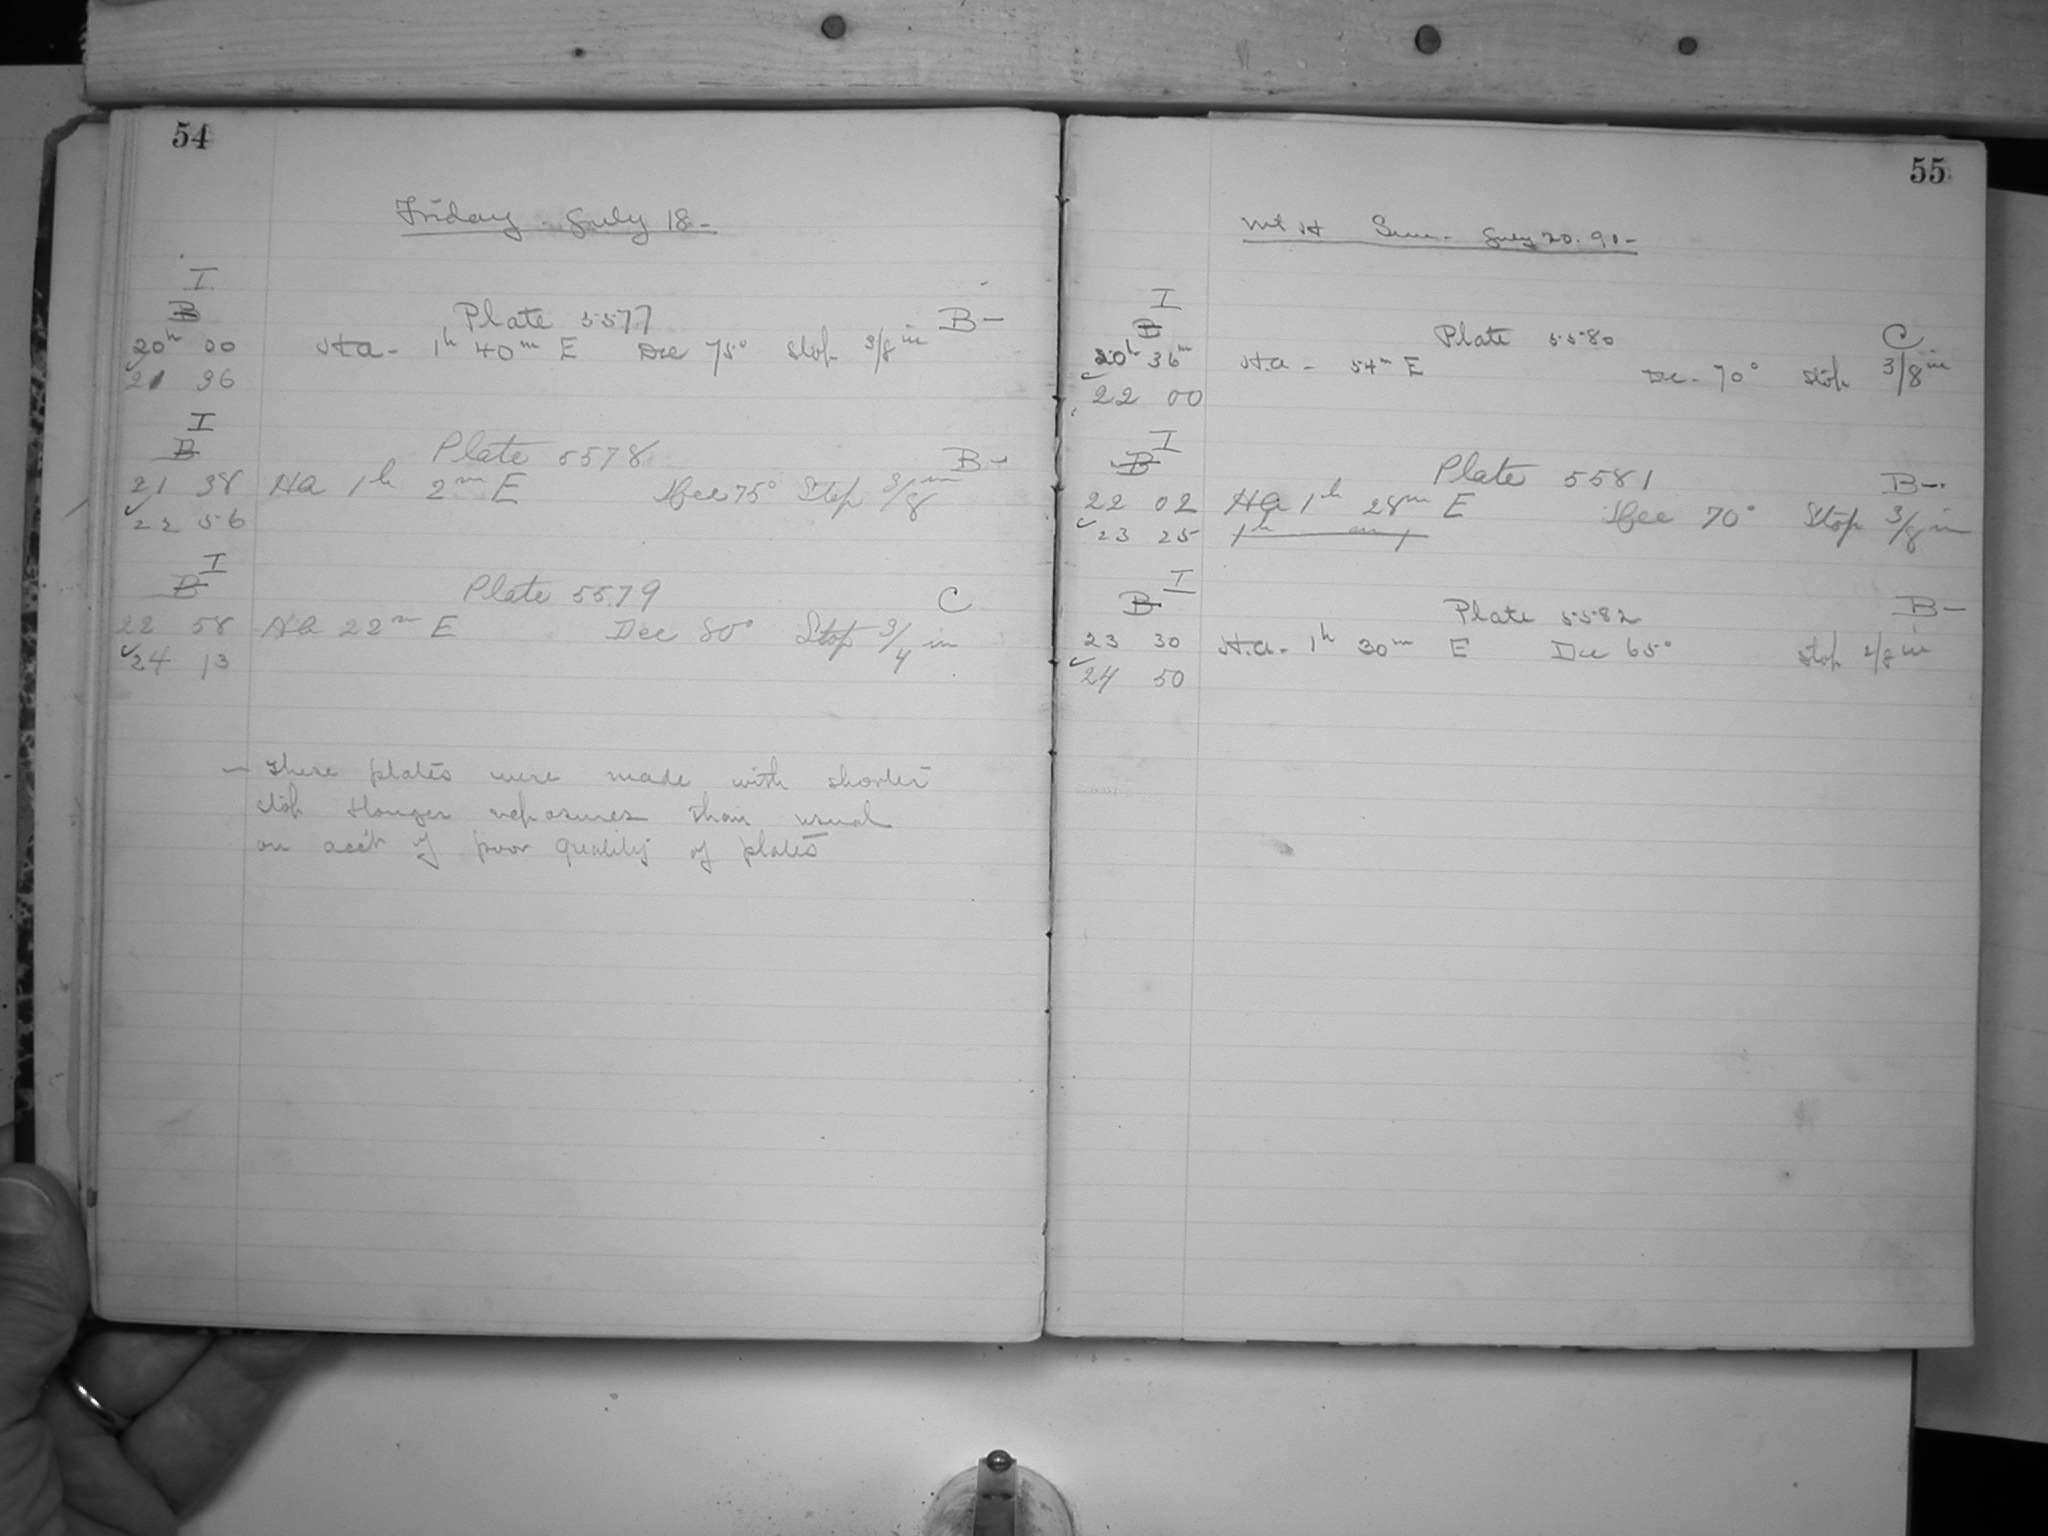 54
Friday - July 18 -
I
B
Plate 5577 B-
20h 00 H.a - 1h 40m E Dec 75° Stop 3/8 in
21 36
I
B
Plate 5578 B-
21 38 HA 1h 2m E Dec 75° Stop 3/8 in
22 56
I
B
Plate 5579 C
22 58 HA 22m E Dec 80° Stop 3/4 in
24 13
- These plates were made with shorter
stop & longer exposures than usual
on acc't of poor quality of plates
55
Mt H Sun - July 20. 90 -
I
B
Plate 5580 C
20h 36m H.a - 54m E Dec - 70° Stop 3/8 in
22 00
I
B
Plate 5581 B-
22 02 HA 1h 28m E Dec 70° Stop 3/8 in
23 25 1h m
I
B
Plate 5582 B-
23 30 H.a - 1h 30m E Dec 65° Stop in
24 50